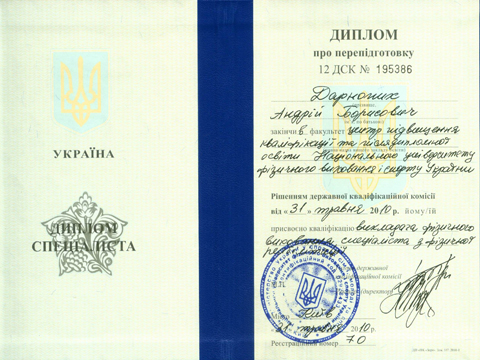 УКРАЇНА
ДИПЛОМ
СПЕЦІАЛІСТА
ДИПЛОМ
про перепідготовку
12 ДСК № 195386
Андрій Борисович
закінчив факультет центр підвищення
кваліфікації та післядипломної
освіти Національного університету
фізичного виховання і спорту України
Рішенням державної кваліфікаційної комісії
від «31» травня 2010 р. йому/їй
присвоєно кваліфікацію викладача фізичного
виховання, спеціаліста з фізичної
державної
комісії
Київ
травня 2010 р.
Реєстраційний номер 70